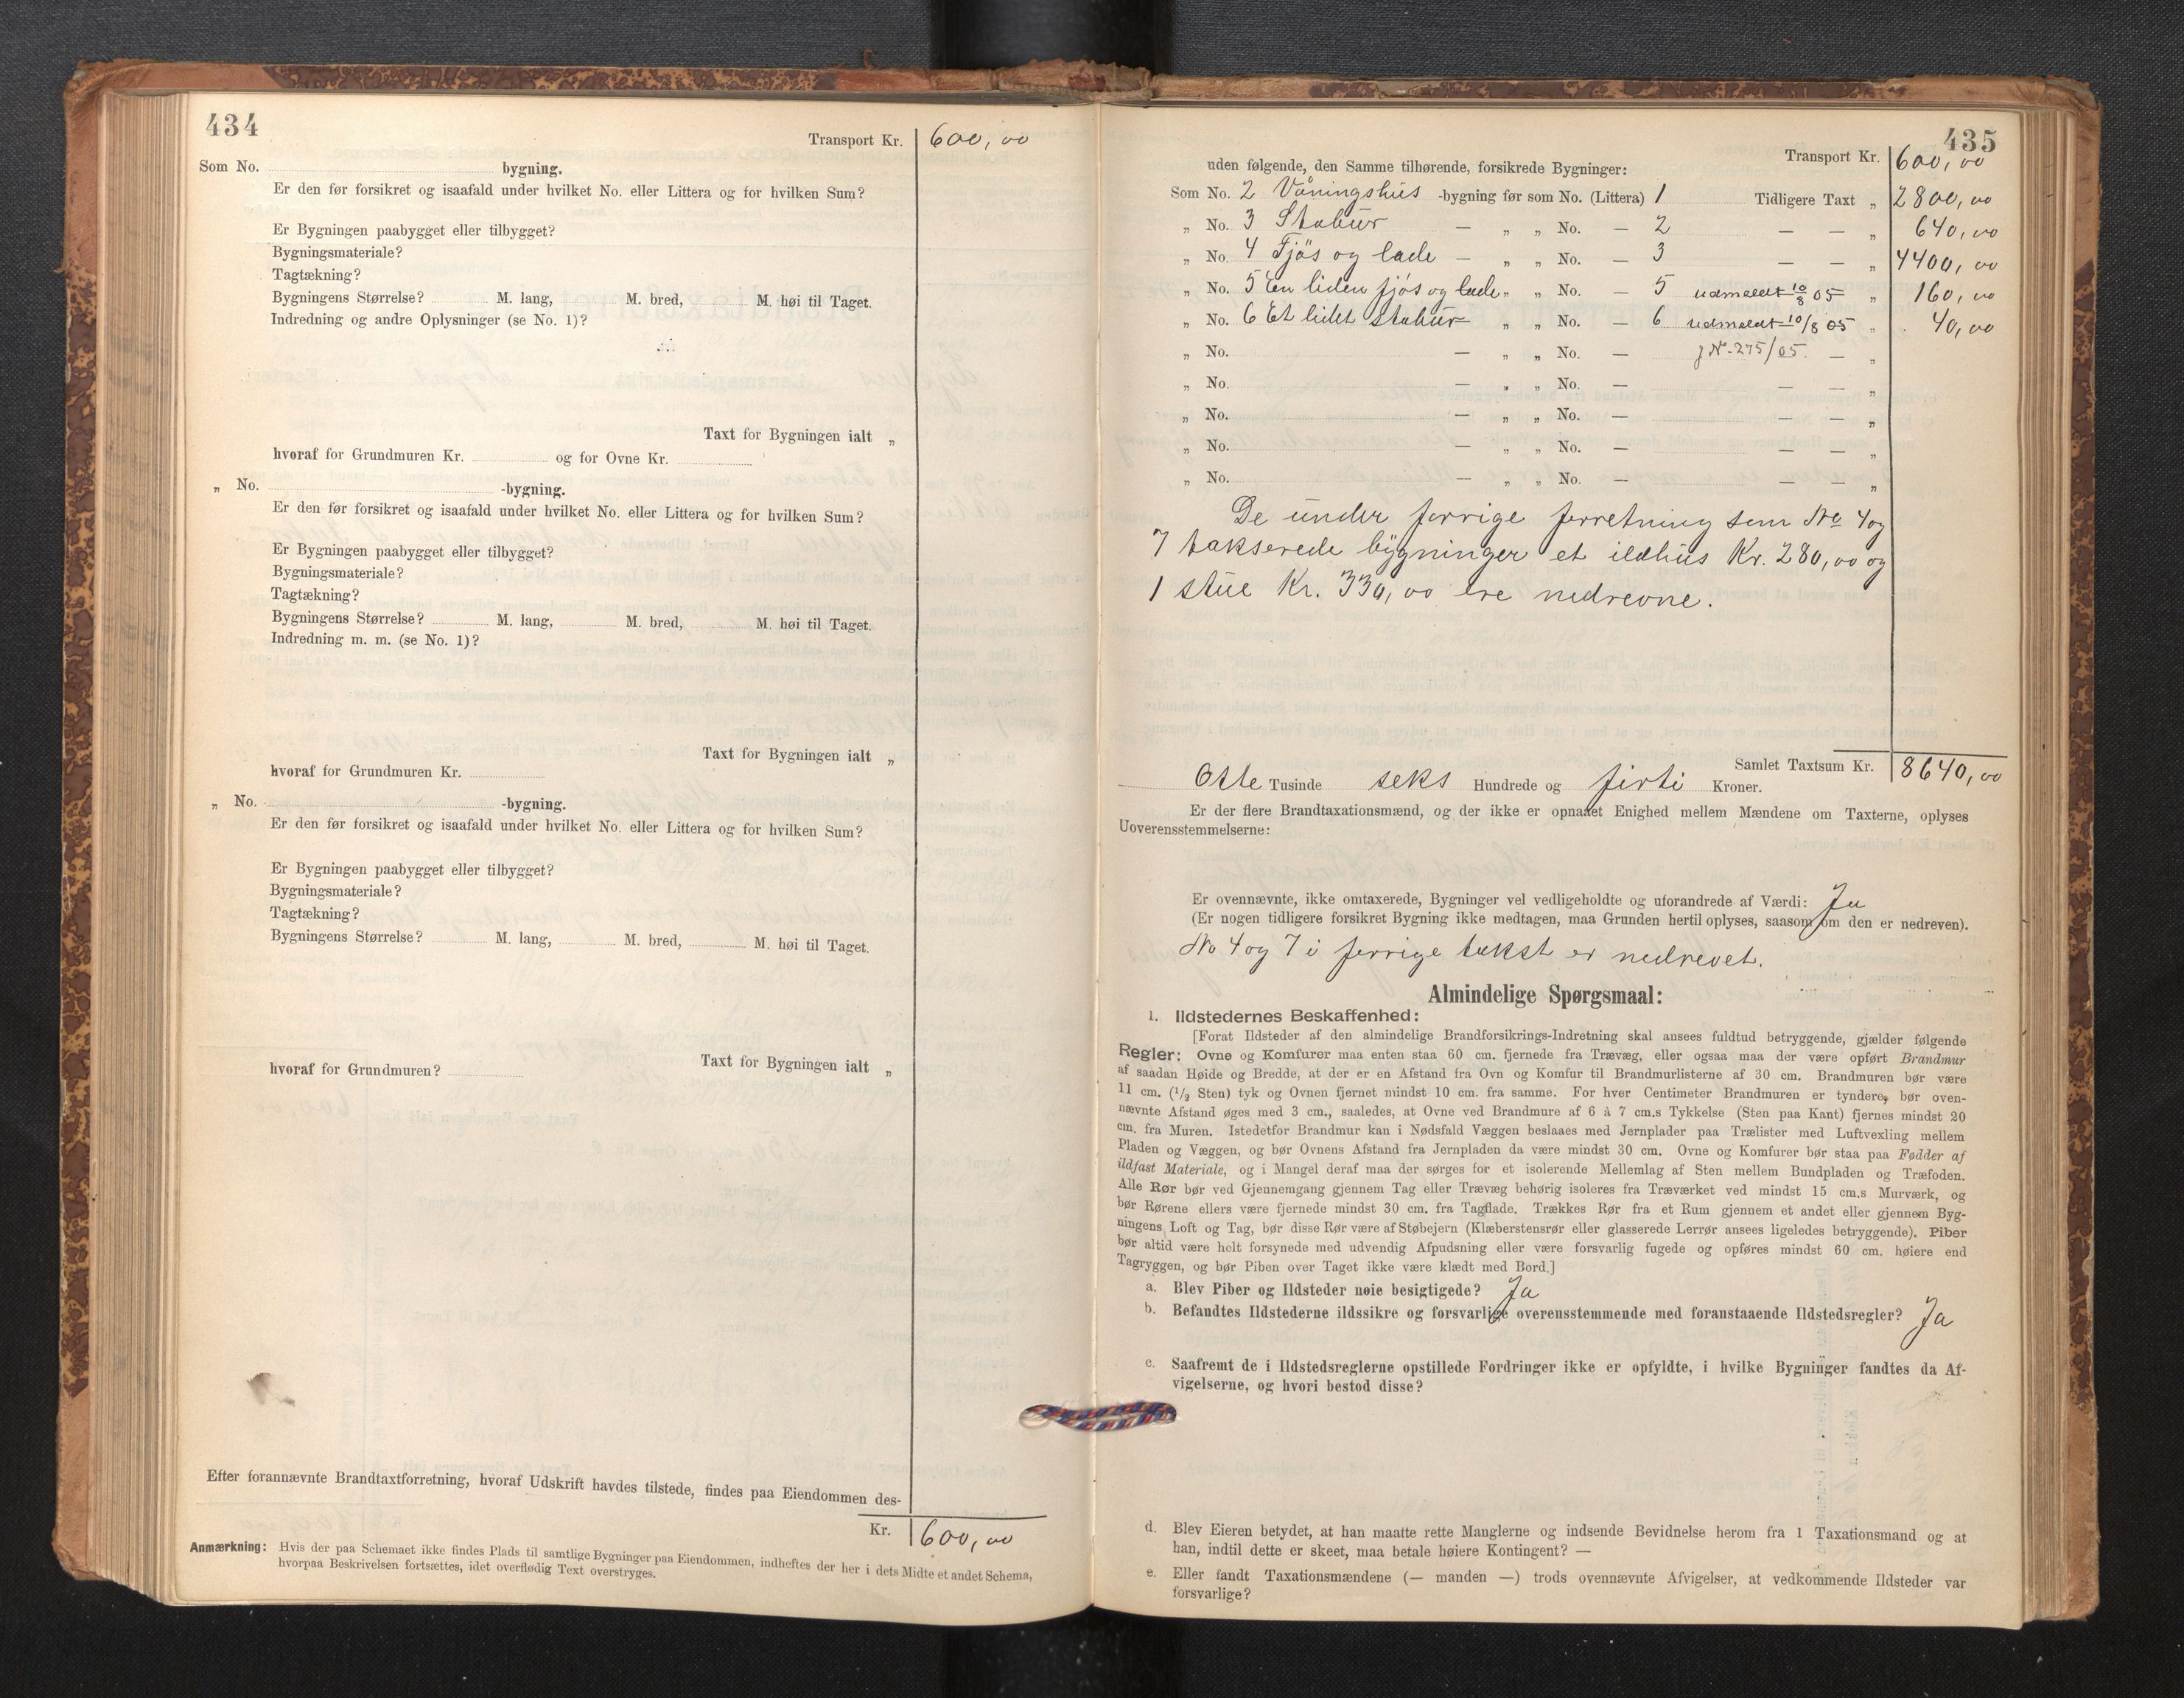 434
Transport Kr. 600,00
Som No. bygning.
Er den før forsikret og isaafald under hvilket No. eller Littera og for hvilken Sum?
Er Bygningen paabygget eller tilbygget?
Bygningsmateriale?
Tagtækning?
Bygningens Størrelse? M. lang, M. bred, M. høi til Taget.
Indredning og andre Oplysninger (se No. 1)?
Taxt for Bygningen ialt „
hvoraf for Grundmuren Kr. og for Ovne Kr.
„ No. -bygning.
Er den før forsikret og isaafald under hvilket No. eller Littera og for hvilken Sum?
Er Bygningen paabygget eller tilbygget?
Bygningsmateriale?
Tagtækning?
Bygningens Størrelse? M. lang, M. bred, M. høi til Taget.
Indredning m. m. (se No. 1)?
Taxt for Bygningen ialt „
hvoraf for Grundmuren Kr.
„ No. -bygning.
Er den før forsikret og isaafald under hvilket No. eller Littera og for hvilken Sum?
Er Bygningen paabygget eller tilbygget?
Bygningsmateriale?
Tagtækning?
Bygningens Størrelse? M. lang, M. bred, M. høi til Taget.
Taxt for Bygningen ialt „
hvoraf for Grundmuren?
Efter forannævnte Brandtaxtforretning, hvoraf Udskrift havdes tilstede, findes paa Eiendommen des-
Kr. 600,00
Anmærkning: Hvis der paa Schemaet ikke findes Plads til samtlige Bygninger paa Eiendommen, indheftes der her i dets Midte et andet Schema,
hvorpaa Beskrivelsen fortsættes, idet overflødig Text overstryges.
435
Transport Kr. 600,00
uden følgende, den Samme tilhørende, forsikrede Bygninger:
Som No. 2 Våningshus -bygning før som No. (Littera) 1 Tidligere Taxt „ 2800,00
„ No. 3 Stabur — „ „ No. — 2 — — „ 640,00
„ No. 4 Fjøs og lade — „ „ No. — 3 — — „ 4400,00
„ No. 5 En liden fjøs og lade „ „ No. — 5 udmeldt 10/8 05 „ 160,00
„ No. 6 Et lidet stabur — „ „ No. — 6 udmeldt 10/8 05 „ 40,00
„ No. — „ „ No. — J No 275/05. — „
„ No. — „ „ No. — — — „
„ No. — „ „ No. — — — „
„ No. — „ „ No. — — — „
„ No. — „ „ No. — — — „
De under forrige forretning som No 4 og
7 takserede bygninger et ildhus Kr. 280,00 og
1 stue Kr. 330,00 ere nedrevne.
Samlet Taxtsum Kr. 8640,00
Otte Tusinde seks Hundrede og firti Kroner.
Er der flere Brandtaxationsmænd, og der ikke er opnaaet Enighed mellem Mændene om Taxterne, oplyses
Uoverensstemmelserne:
Er ovennævnte, ikke omtaxerede, Bygninger vel vedligeholdte og uforandrede af Værdi: Ja
(Er nogen tidligere forsikret Bygning ikke medtagen, maa Grunden hertil oplyses, saasom om den er nedreven).
No 4 og 7 i forrige takst er nedrevet.
Almindelige Spørgsmaal:
1. Ildstedernes Beskaffenhed:
[Forat Ildsteder af den almindelige Brandforsikrings-Indretning skal ansees fuldtud betryggende, gjælder følgende
Regler: Ovne og Komfurer maa enten staa 60 cm. fjernede fra Trævæg, eller ogsaa maa der være opført Brandmur
af saadan Høide og Bredde, at der er en Afstand fra Ovn og Komfur til Brandmurlisterne af 30 cm. Brandmuren bør være
11 cm. (1/2 Sten) tyk og Ovnen fjernet mindst 10 cm. fra samme. For hver Centimeter Brandmuren er tyndere, bør oven-
nævnte Afstand øges med 3 cm., saaledes, at Ovne ved Brandmure af 6 à 7 cm.s Tykkelse (Sten paa Kant) fjernes mindst 20
cm. fra Muren. Istedetfor Brandmur kan i Nødsfald Væggen beslaaes med Jernplader paa Trælister med Luftvexling mellem
Pladen og Væggen, og bør Ovnens Afstand fra Jernpladen da være mindst 30 cm. Ovne og Komfurer bør staa paa Fødder af
ildfast Materiale, og i Mangel deraf maa der sørges for et isolerende Mellemlag af Sten mellem Bundpladen og Træfoden.
Alle Rør bør ved Gjennemgang gjennem Tag eller Trævæg behørig isoleres fra Træværket ved mindst 15 cm.s Murværk, og
bør Rørene ellers være fjernede mindst 30 cm. fra Tagflade. Trækkes Rør fra et Rum gjennem et andet eller gjennem Byg-
ningens Loft og Tag, bør disse Rør være af Støbejern (Klæberstensrør eller glasserede Lerrør ansees ligeledes betryggende). Piber
bør altid være helt forsynede med udvendig Afpudsning eller være forsvarlig fugede og opføres mindst 60 cm. høiere end
Tagryggen, og bør Piben over Taget ikke være klædt med Bord.]
a. Blev Piber og Ildsteder nøie besigtigede? Ja
b. Befandtes Ildstederne ildssikre og forsvarlige overensstemmende med foranstaaende Ildstedsregler? Ja
c. Saafremt de i Ildstedsreglerne opstillede Fordringer ikke er opfyldte, i hvilke Bygninger fandtes da Af-
vigelserne, og hvori bestod disse?
d. Blev Eieren betydet, at han maatte rette Manglerne og indsende Bevidnelse herom fra 1 Taxationsmand og at
han, indtil dette er skeet, maa betale høiere Kontingent? —
e. Eller fandt Taxationsmændene (— manden —) trods ovennævnte Afvigelser, at vedkommende Ildsteder var
forsvarlige?